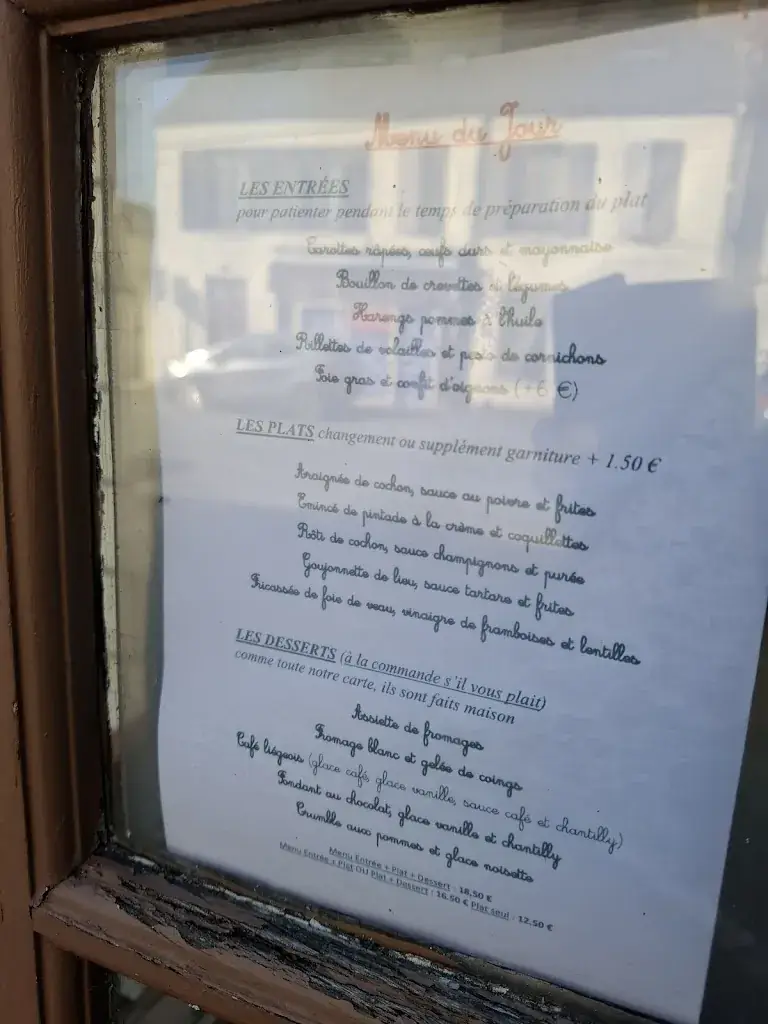 Menu du Jour
LES ENTRÉES
pour patienter pendant le temps de préparation du plat
Carottes râpées, oeufs durs et mayonnaise
Bouillon de crevettes et légumes
Harengs pommes à l'huile
Rillettes de volailles et pesto de cornichons
Foie gras et confit d'oignons (+6 €)
LES PLATS changement ou supplément garniture + 1.50 €
Araignée de cochon, sauce au poivre et frites
Emincé de pintade à la crème et coquillettes
Rôti de cochon, sauce champignons et purée
Goujonnette de lieu, sauce tartare et frites
Fricassée de foie de veau, vinaigre de framboises et lentilles
LES DESSERTS (à la commande s'il vous plait)
comme toute notre carte, ils sont faits maison
Assiette de fromages
Fromage blanc et gelée de coings
Café liégeois (glace café, glace vanille, sauce café et chantilly)
Fondant au chocolat, glace vanille et chantilly
Crumble aux pommes et glace noisette
Menu Entrée + Plat + Dessert : 18,50 €
Menu Entrée + Plat OU Plat + Dessert : 16,50 € Plat seul : 12,50 €